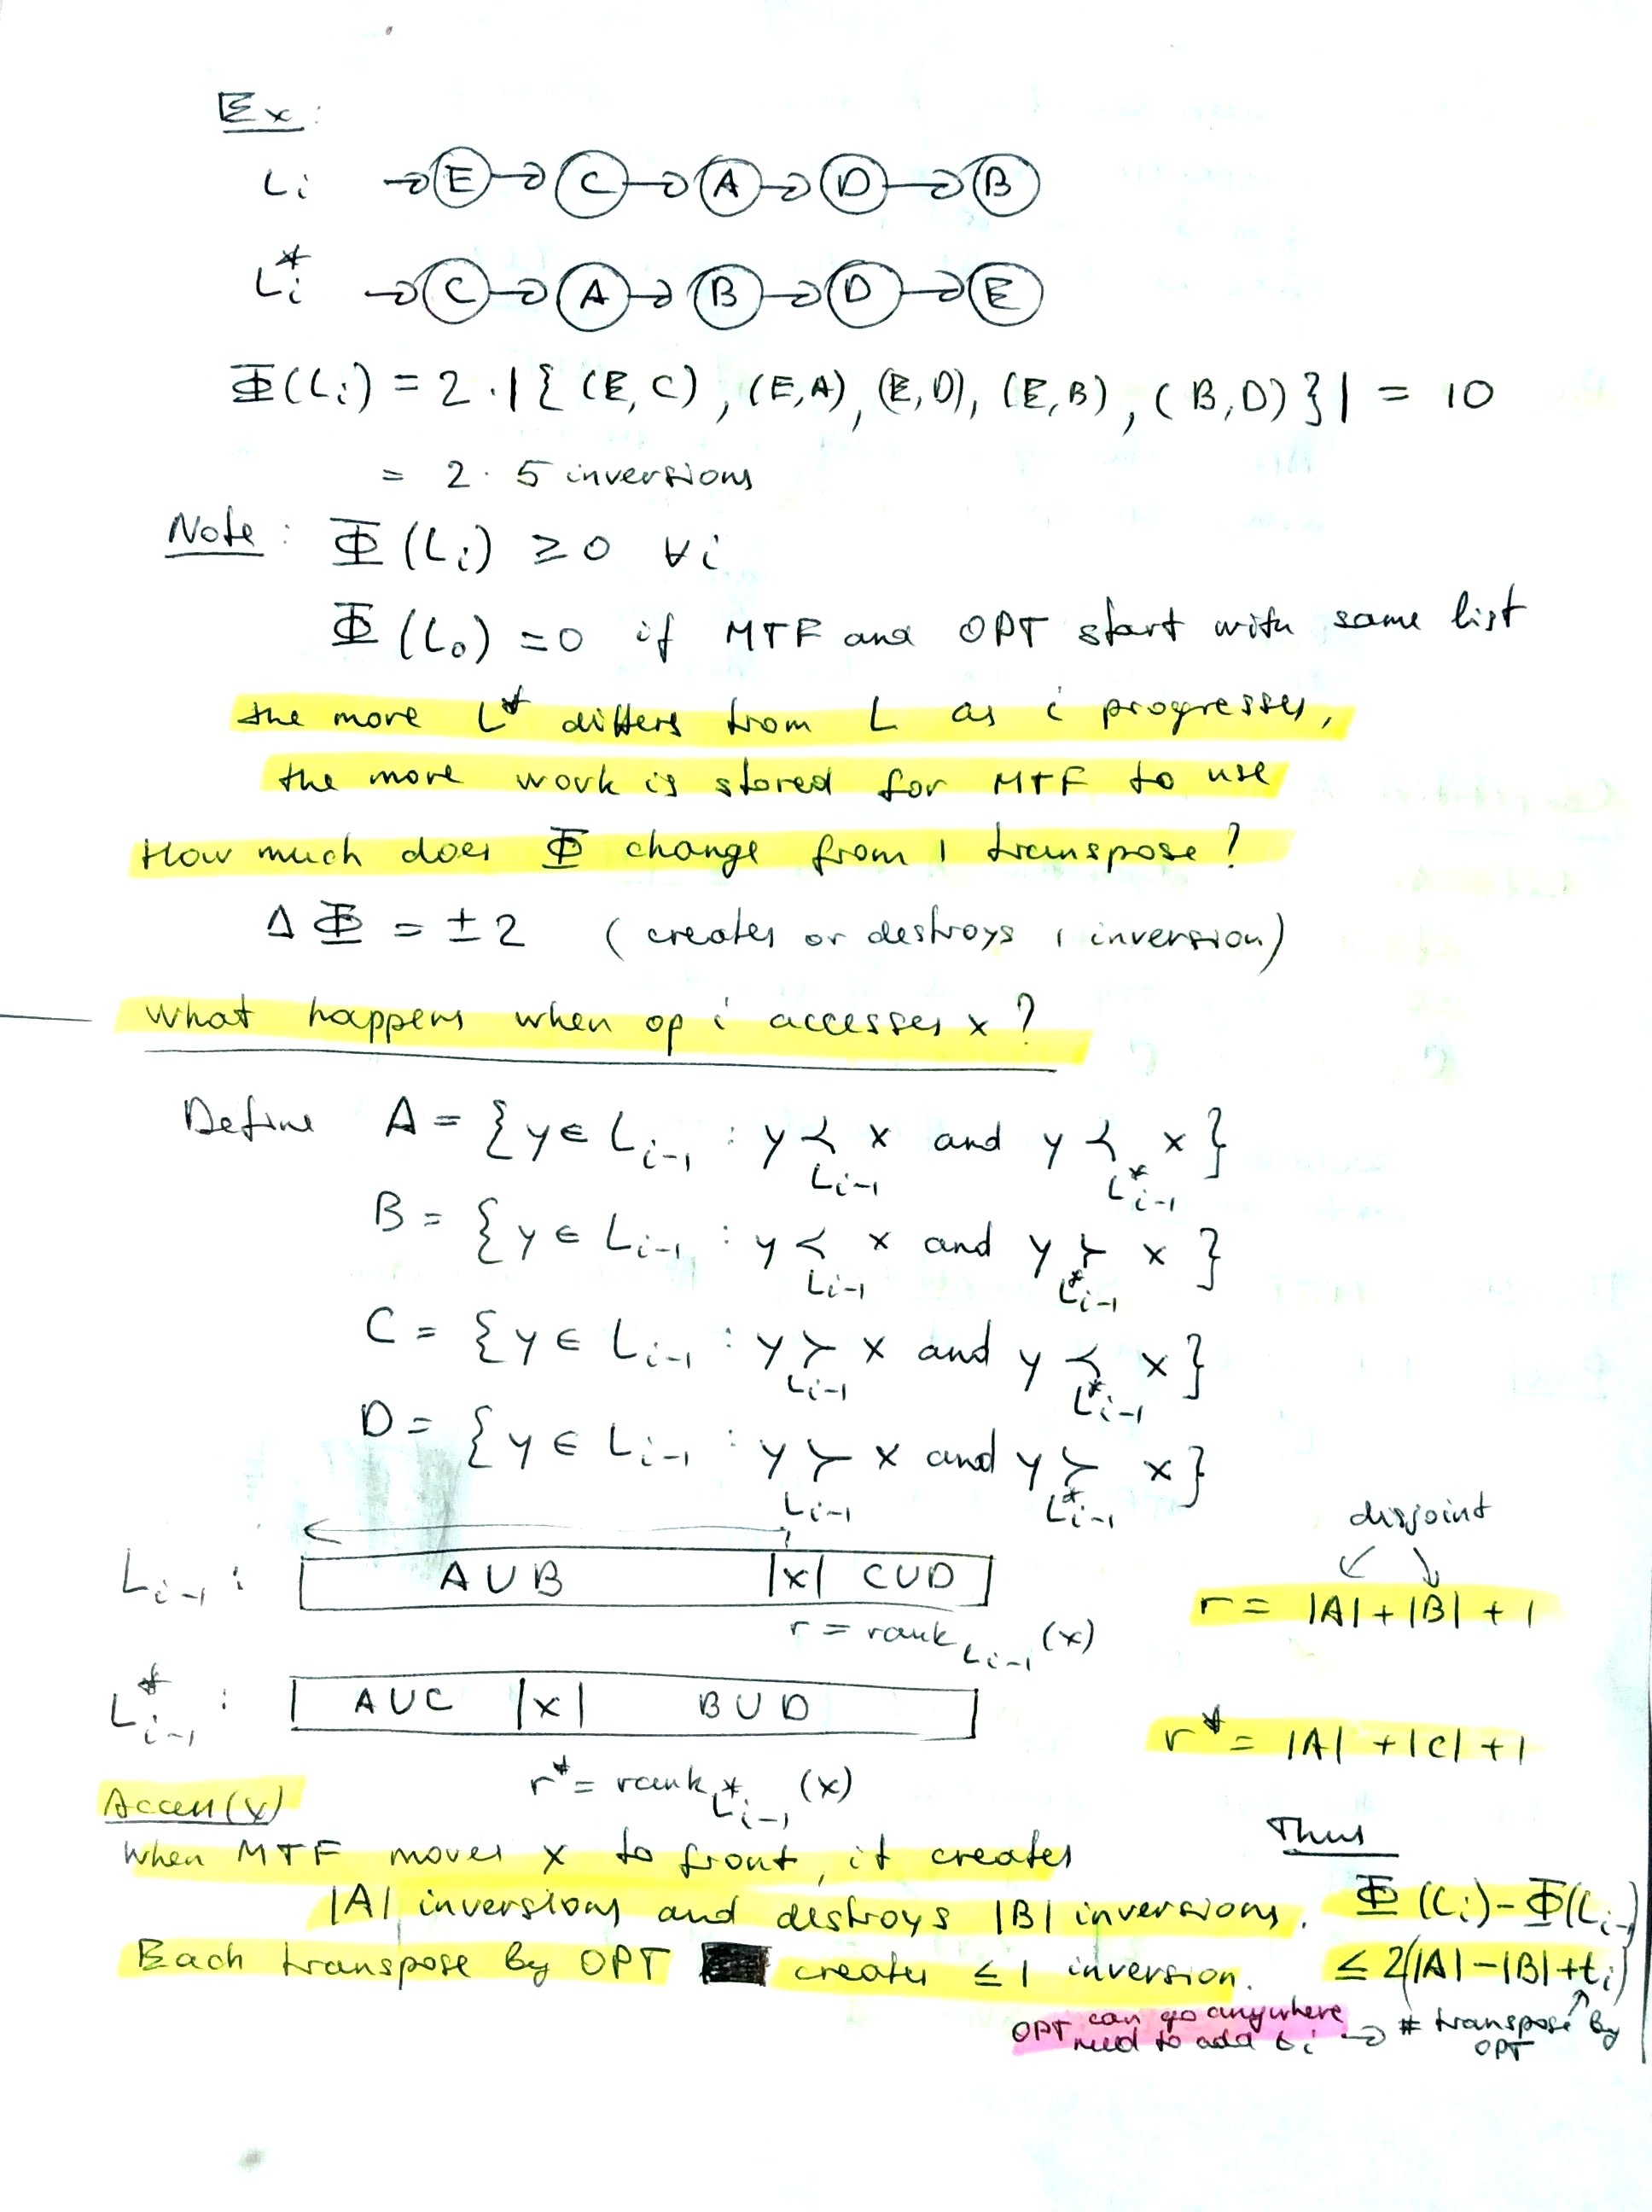 Ex:
Li → E → C → A → D → B
L*i → C → A → B → D → E
Φ(Li) = 2·|{(E,C), (E,A), (E,D), (E,B), (B,D)}| = 10
= 2 · 5 inversions
Note: Φ(Li) ≥ 0 ∀i
Φ(L0) = 0 if MTF and OPT start with same list
the more L* differs from L as i progresses,
the more work is stored for MTF to use
How much does Φ change from 1 transpose?
ΔΦ = ±2 (creates or destroys 1 inversion)
What happens when op i accesses x?
Define A = {y ∈ Li-1 : y ≺Li-1 x and y ≺L*i-1 x}
B = {y ∈ Li-1 : y ≺Li-1 x and y ≻L*i-1 x}
C = {y ∈ Li-1 : y ≻Li-1 x and y ≺L*i-1 x}
D = {y ∈ Li-1 : y ≻Li-1 x and y ≻L*i-1 x}
disjoint
Li-1 : A∪B |x| C∪D
r = |A| + |B| + 1
r = rankLi-1 (x)
L*i-1 : A∪C |x| B∪D
r* = |A| + |C| + 1
r* = rankL*i-1 (x)
Access(x)
Thus
When MTF moves x to front, it creates
|A| inversions and destroys |B| inversions.
Φ(Li) - Φ(Li-1)
Each transpose by OPT creates ≤ 1 inversion.
≤ 2(|A| - |B| + ti)
OPT can go anywhere
need to add ti → # transpose by
OPT